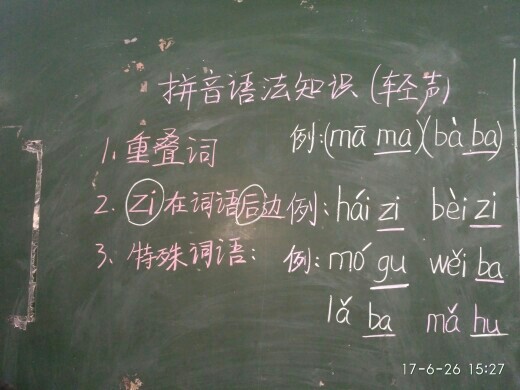 拼音语法知识(轻声)
1、重叠词 例:(mā ma)(bà ba)
2、zi在词语后边例:hái zi bèi zi
3、特殊词语: 例:mó gu wěi ba
lǎ ba mǎ hu
17-6-26 15:27